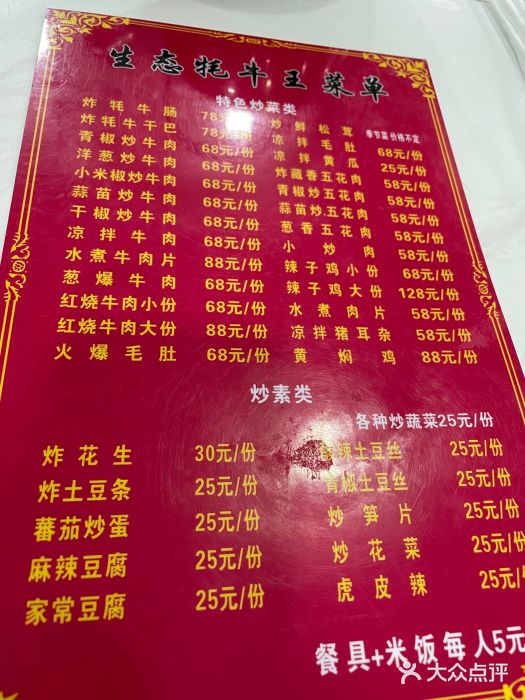 生态牦牛王菜单
特色炒菜类
炸牦牛肠 78元/份
炒鲜松茸 季节菜 价格不定
炸牦牛干巴 78元/份
凉拌毛肚 68元/份
青椒炒牛肉 68元/份
凉拌黄瓜 25元/份
洋葱炒牛肉 68元/份
炸藏香五花肉 58元/份
小米椒炒牛肉 68元/份
青椒炒五花肉 58元/份
蒜苗炒牛肉 68元/份
蒜苗炒五花肉 58元/份
干椒炒牛肉 68元/份
葱香五花肉 58元/份
凉拌牛肉 68元/份
小炒肉 58元/份
水煮牛肉片 88元/份
辣子鸡小份 68元/份
葱爆牛肉 68元/份
辣子鸡大份 128元/份
红烧牛肉小份 68元/份
水煮肉片 58元/份
红烧牛肉大份 88元/份
凉拌猪耳杂 58元/份
火爆毛肚 68元/份
黄焖鸡 88元/份
炒素类
各种炒蔬菜25元/份
炸花生 30元/份
辣土豆丝 25元/份
炸土豆条 25元/份
青椒土豆丝 25元/份
蕃茄炒蛋 25元/份
炒笋片 25元/份
麻辣豆腐 25元/份
炒花菜 25元/份
家常豆腐 25元/份
虎皮辣 25元/份
餐具+米饭每人5元
大众点评